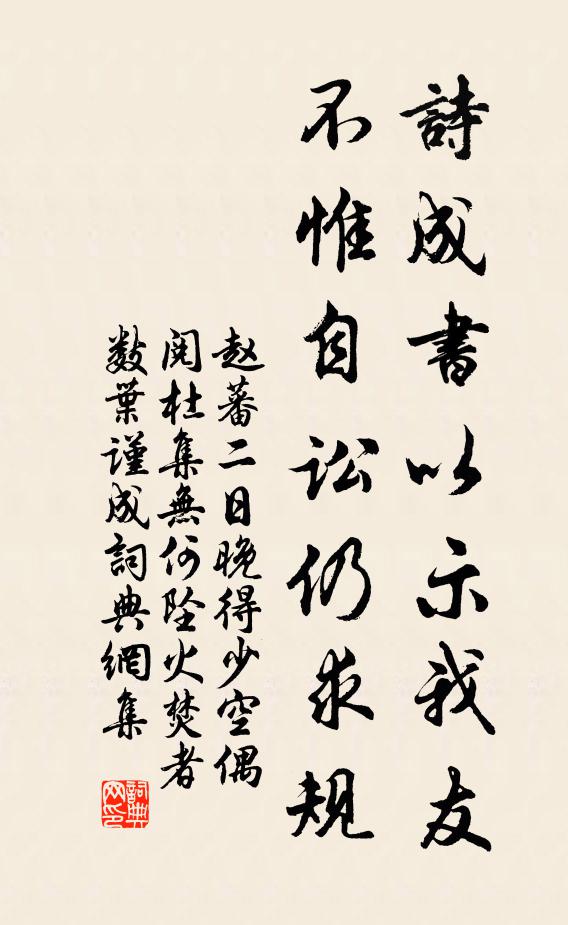 詩成書以示我友
不惟自訟仍求規
赵蕃二日晚得少空偶
閱杜集無何墜火焚者
数葉謹成詞典網集
詞典网印